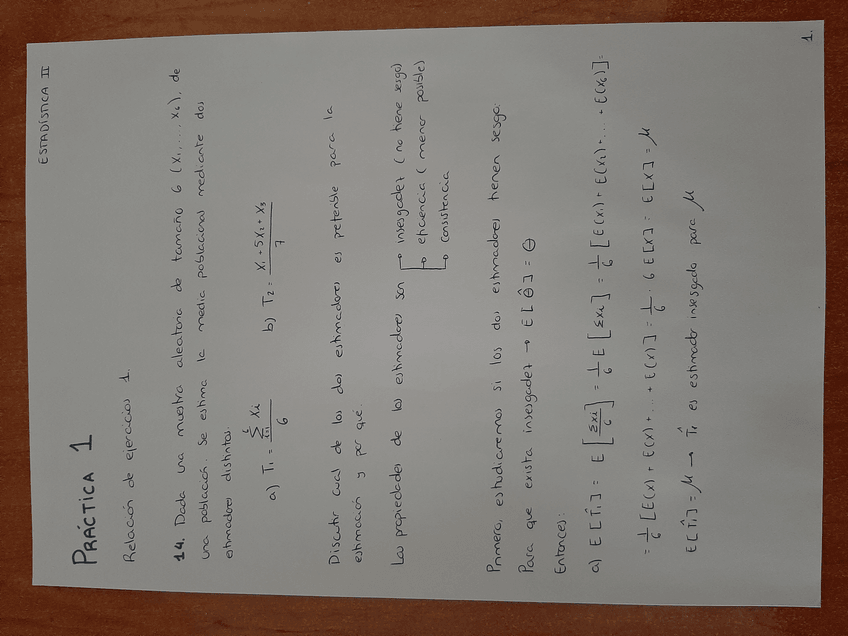 ESTADÍSTICA II
PRÁCTICA 1
Relación de ejercicios 1.
14. Dada una muestra aleatoria de tamaño 6 (x₁,... x₆), de
una población. Se estima la media poblacional mediante dos
estimadores distintos.
a) T₁ = \frac{\sum_{i=1}^{6} Xi}{6} b) T₂ = \frac{X₁ + 5X₂ + X₃}{7}
Discutir cual de los dos estimadores es preferible para la
estimación y por qué.
Las propiedades de los estimadores son → insesgadez (no tiene sesgo)
→ eficiencia (menor posible)
→ consistencia
Primero, estudiaremos si los dos estimadores tienen sesgo:
Para que exista insesgadez → E[θ̂] = θ
Entonces:
a) E[T̂₁] = E[\frac{Σxi}{6}] = \frac{1}{6} E[Σxi] = \frac{1}{6} [E(x₁) + E(x₂) + ... + E(x₆)] =
= \frac{1}{6} [E(x) + E(x) + ... + E(x)] = \frac{1}{6} · 6 E[x] = E[x] = μ
E[T̂₁] = μ → T̂₁ es estimador insesgado para μ
1.